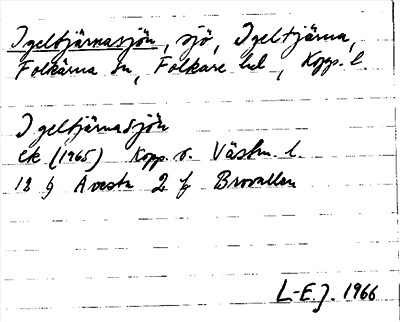 Igeltjärnasjön, sjö, Igeltjärna,
Folkärna sn, Folkare hd, Kopp. l.
Igeltjärnasjön
ek (1965) Kopp o. Västm. l.
12 g Avesta 2 f Brovallen
L-E.J. 1966